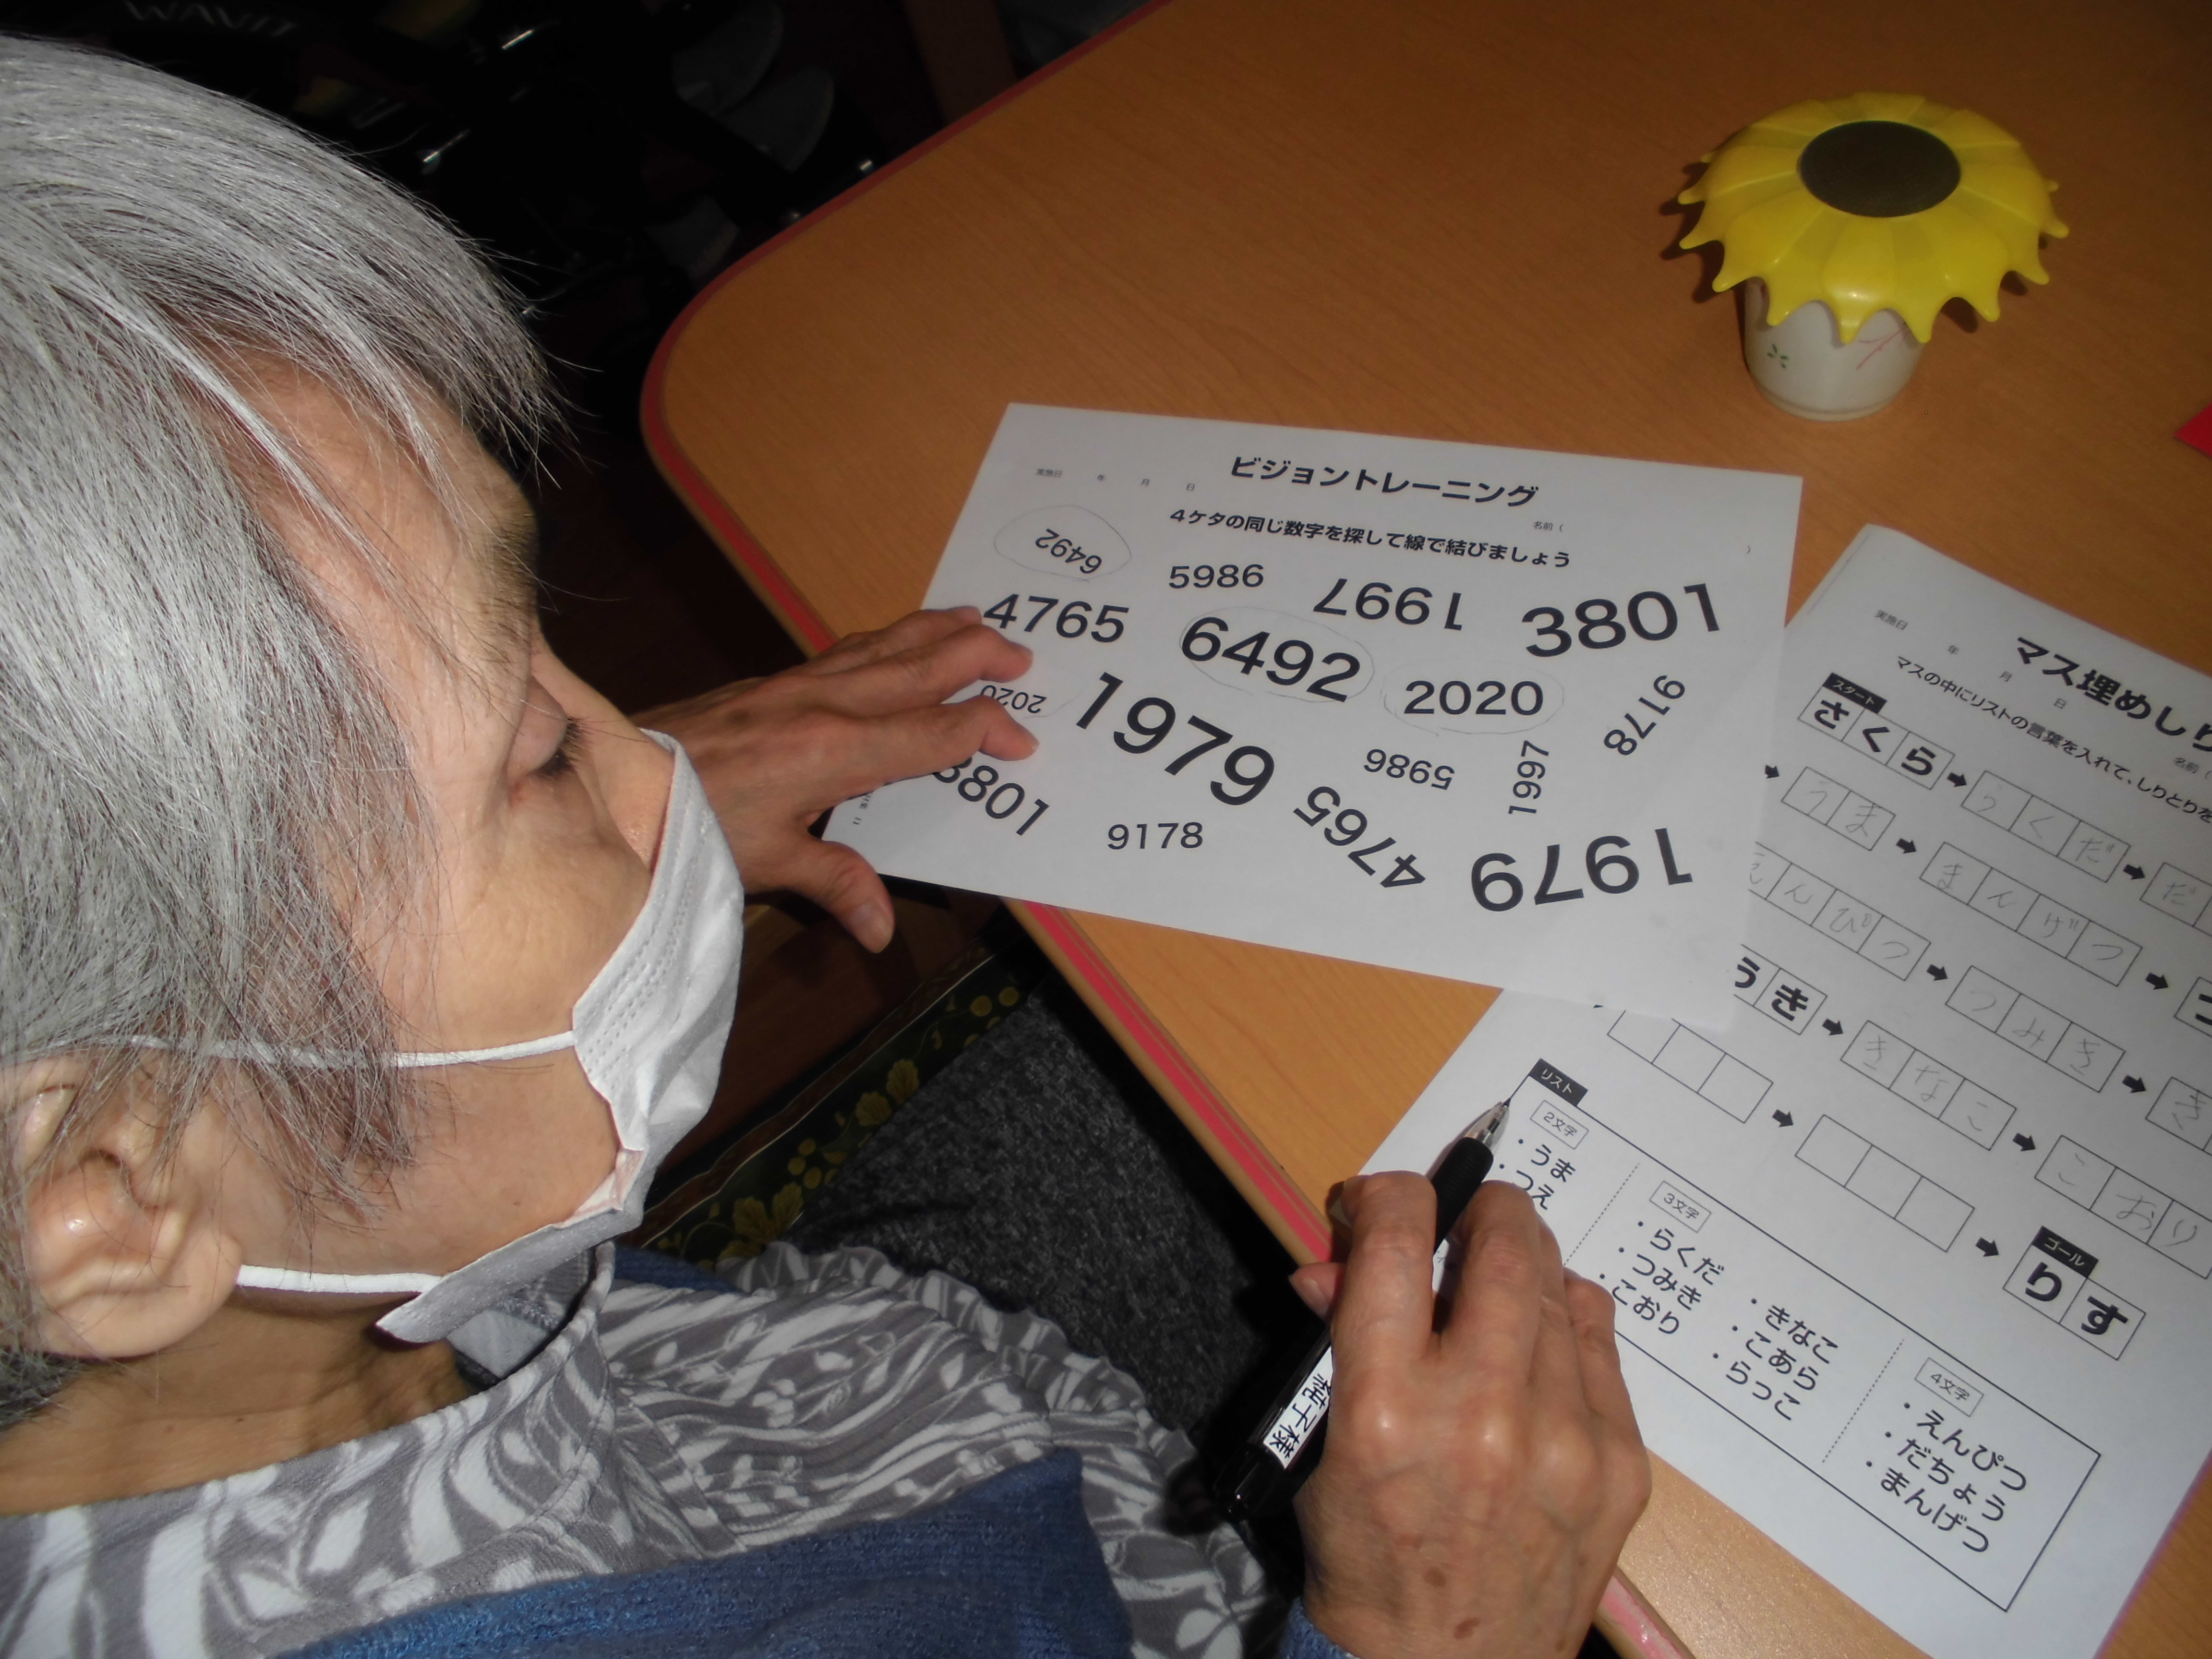 WAVIT
ビジョントレーニング
実施日 年 月 日
名前（ ）
4ケタの同じ数字を探して線で結びましょう
6492
5986
1997
3801
4765
6492
2020
9178
2020
1979
5986
1997
3801
9178
4765
1979
マス埋めしり
実施日 年 月 日
名前（
マスの中にリストの言葉を入れて、しりとりを
スタート
さくら
らくだ
だ
うま
まんげつ
えんぴつ
つみき
き
うき
きなこ
こおり
ゴール
りす
リスト
2文字
・うま
・つえ
3文字
・らくだ
・つみき
・こおり
・きなこ
・こあら
・らっこ
4文字
・えんぴつ
・だちょう
・まんげつ
子様